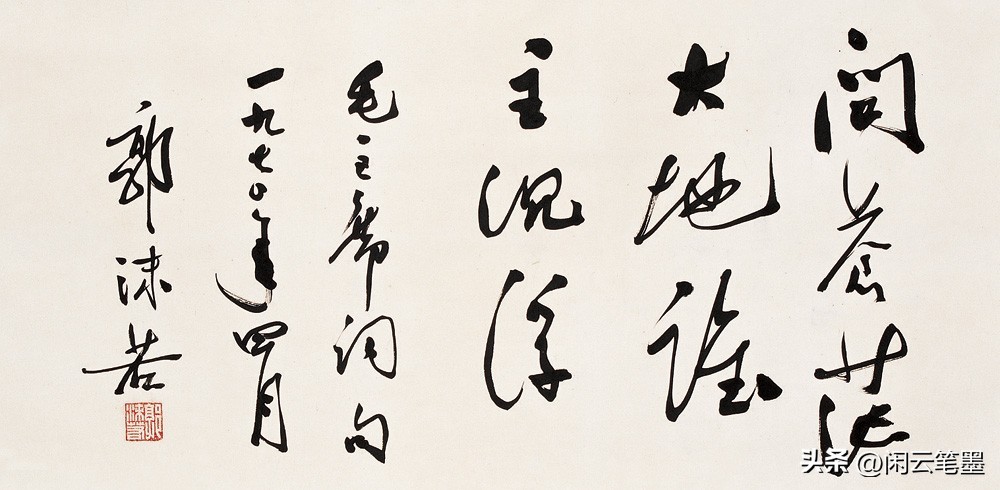 问苍茫
大地谁
主沉浮
毛主席词句
一九七〇年四月
郭沫若
郭沫若
头条 @闲云笔墨